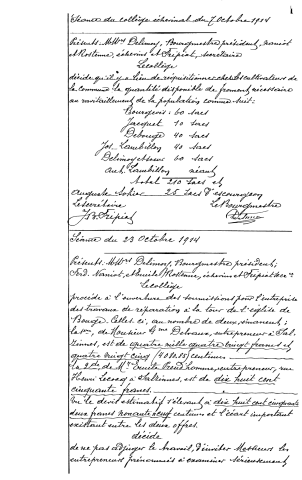 Séance du collège échevinal du 7 Octobre 1914
Présents. MM. Delimoy, Bourgmestre président, Naniot
et Rostenne, échevins et Frépiat, secrétaire
Le collège
décide qu'il y a lieu de réquisitionner chez les cultivateurs de
la commune la quantité disponible de froment nécessaire
au ravitaillement de la population comme suit:
Bourgeois: 60 sacs
Jacquet 10 sacs
Debouge 40 sacs
Jos. Lambillon 40 sacs
Delimoy 60 sacs
Ant. Lambillon néant
total 210 sacs et
Auguste 25 sacs d'escourgeon
Le secrétaire Le Bourgmestre
J. Frépiat
Séance du 23 Octobre 1914
Présents. MM. Delimoy, Bourgmestre président,
Naniot, Rostenne, échevins et Frépiat
Le collège
procède à l'ouverture des soumissions pour l'entreprise
des travaux de réparation à la tour de l'église de
Bouge. Celles ci, au nombre de deux, sont:
la 1re, de Monsieur Delvaux, entrepreneur à
est de quatre mille quatre cent francs et
quatre vingt cinq centimes
la 2de de Mr Emile Prud'homme, entrepreneur, rue
Henri Lecocq à Salzinnes, est de dix huit cent
cinquante francs.
Vu le devis estimatif s'élevant à dix huit cent cinquante
deux francs nonante neuf centimes et l'écart important
existant entre les deux offres.
décide
de ne pas adjuger le travail, d'inviter Messieurs les
entrepreneurs prénommés à examiner sérieusement